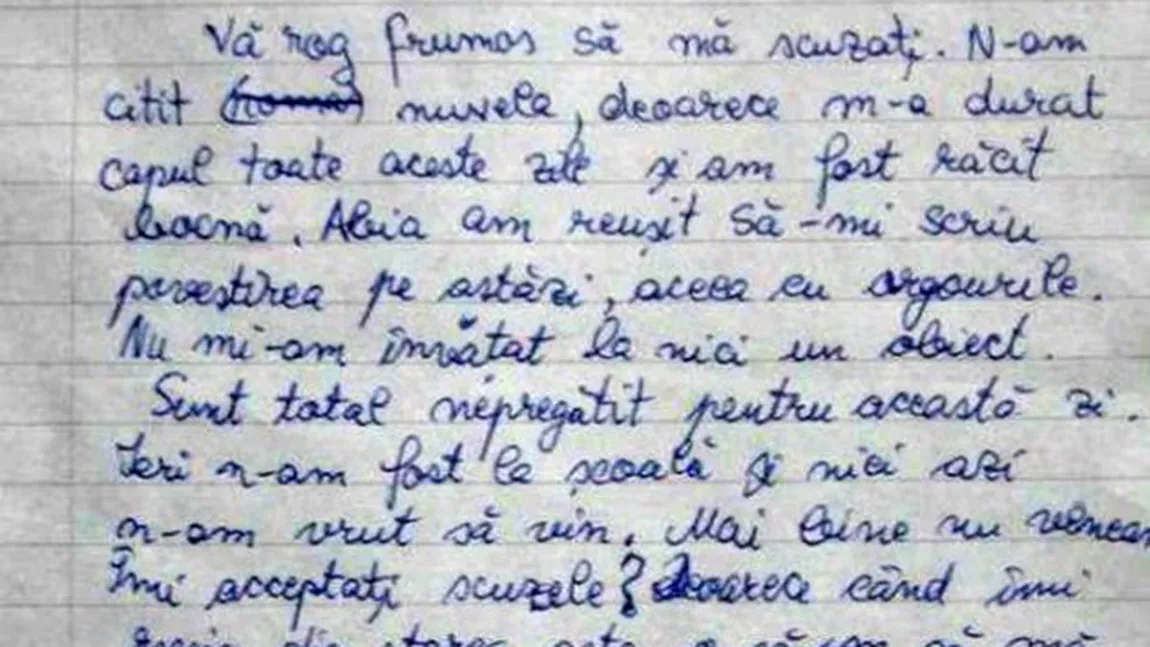 Vă rog frumos să mă scuzați. N-am
citit nuvela, deoarece m-a durat
capul toate aceste zile și am fost răcit
bocnă. Abia am reușit să-mi scriu
povestirea pe astăzi, aceea cu argourile.
Nu mi-am învătat la nici un obiect.
Sunt total nepregătit pentru această zi.
Ieri n-am fost la școală și nici azi
n-am vrut să vin. Mai bine nu veneam
Îmi acceptați scuzele? Deoarece când îmi